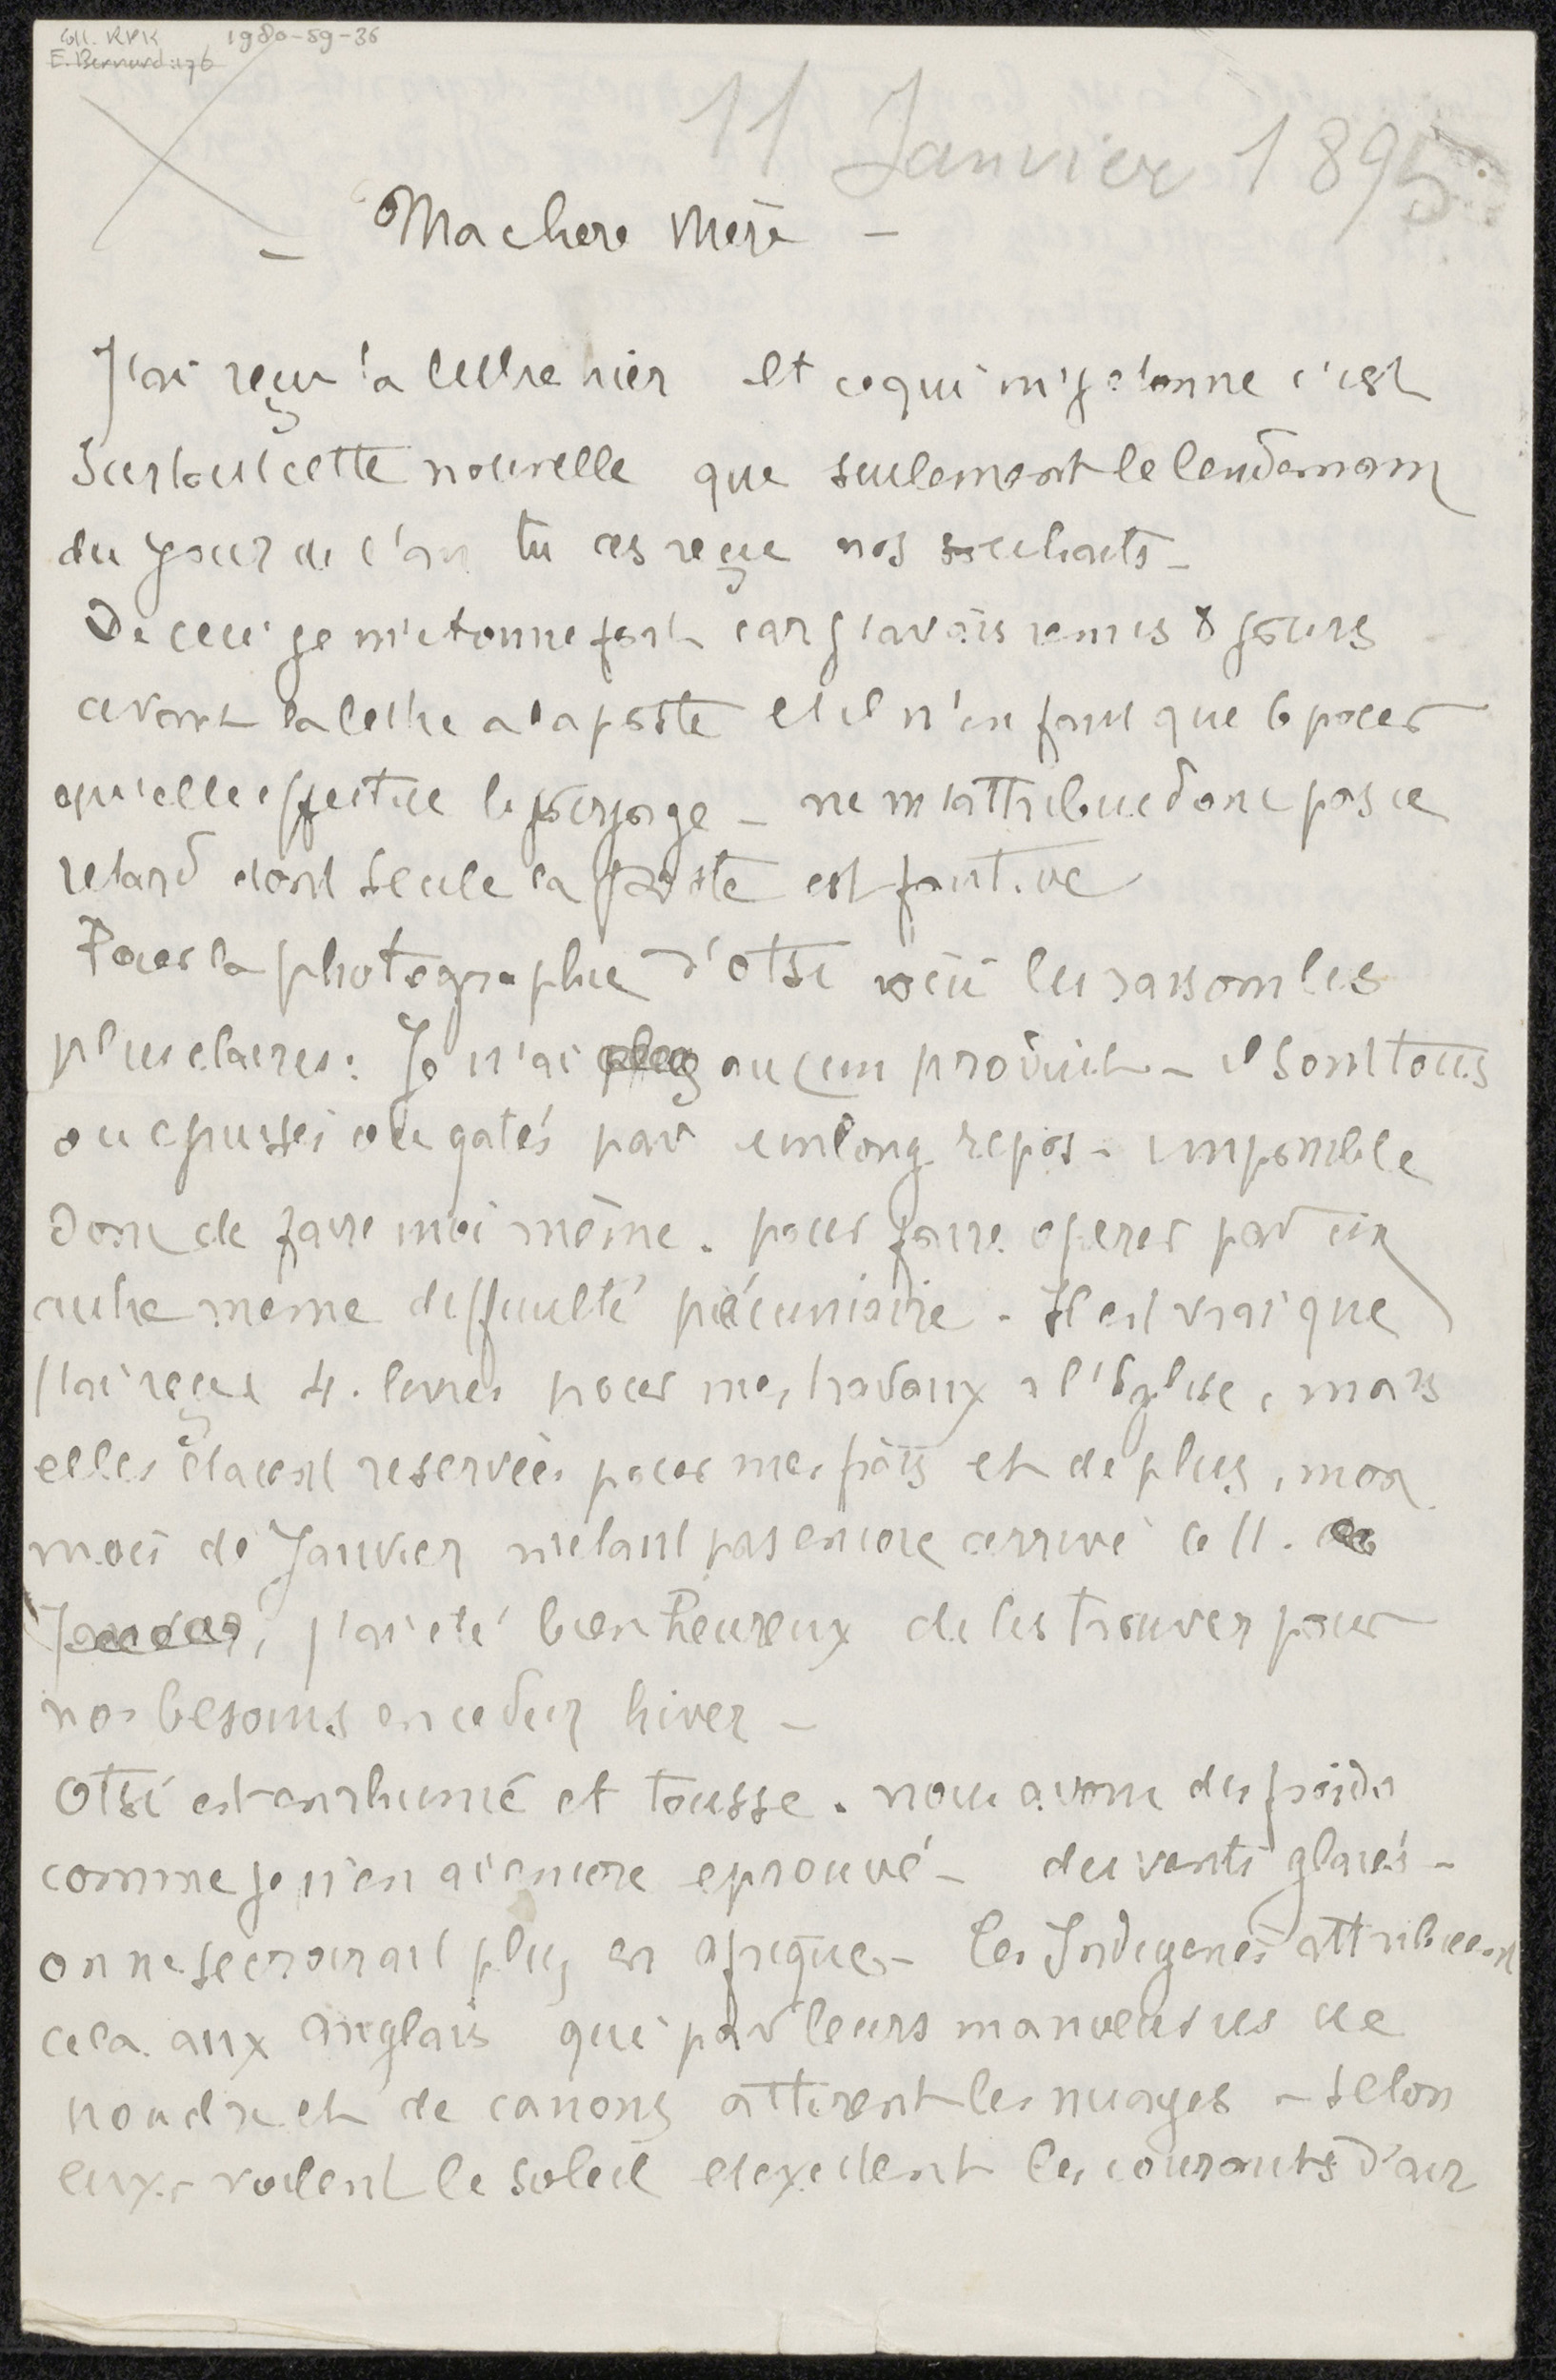 Coll. RPK 1980-59-36
E. Bernard: 176
11 Janvier 1895
Ma chere Mère -
J'ai reçu ta lettre hier et ce qui m'y etonne c'est
surtout cette nouvelle que seulement le lendemain
du jour de l'an tu as reçue nos souhaits -
De ceci je m'etonne fort car j'avais remis 8 jours
avant la lettre a la poste et il n'en faut que 6 pour
qu'elle effectue le voyage - ne m'attribue donc pas ce
retard dont seule la poste est fautive
Pour la photographie d'Otsi voici les raisons les
plus claires : Je n'ai plus aucun produit - il sont tous
ou epuisés ou gatés par un long repos - impossible
donc de faire moi même . pour faire operer par un
autre même difficulté pécuniaire - Il est vrai que
j'ai reçu 4 . livres pour mes travaux a l'Eglise , mais
elles étaient reservées pour mes frais et de plus , mon
mois de Janvier n'etant pas encore arrivé le 11 .
Janvier , j'ai eté bien heureux de les trouver pour
nos besoins en ce dur hiver -
Otsi est enrhumé et tousse . nous avons des froids
comme je n'en ai encore eprouvé - des vents glacés -
on ne se croirait plus en afrique - Les Indigenes attribuent
cela aux anglais qui par leurs manoeuvres de
poudre et de canons attirent les nuages - selon
eux - voilent le soleil et excitent les courants d'air